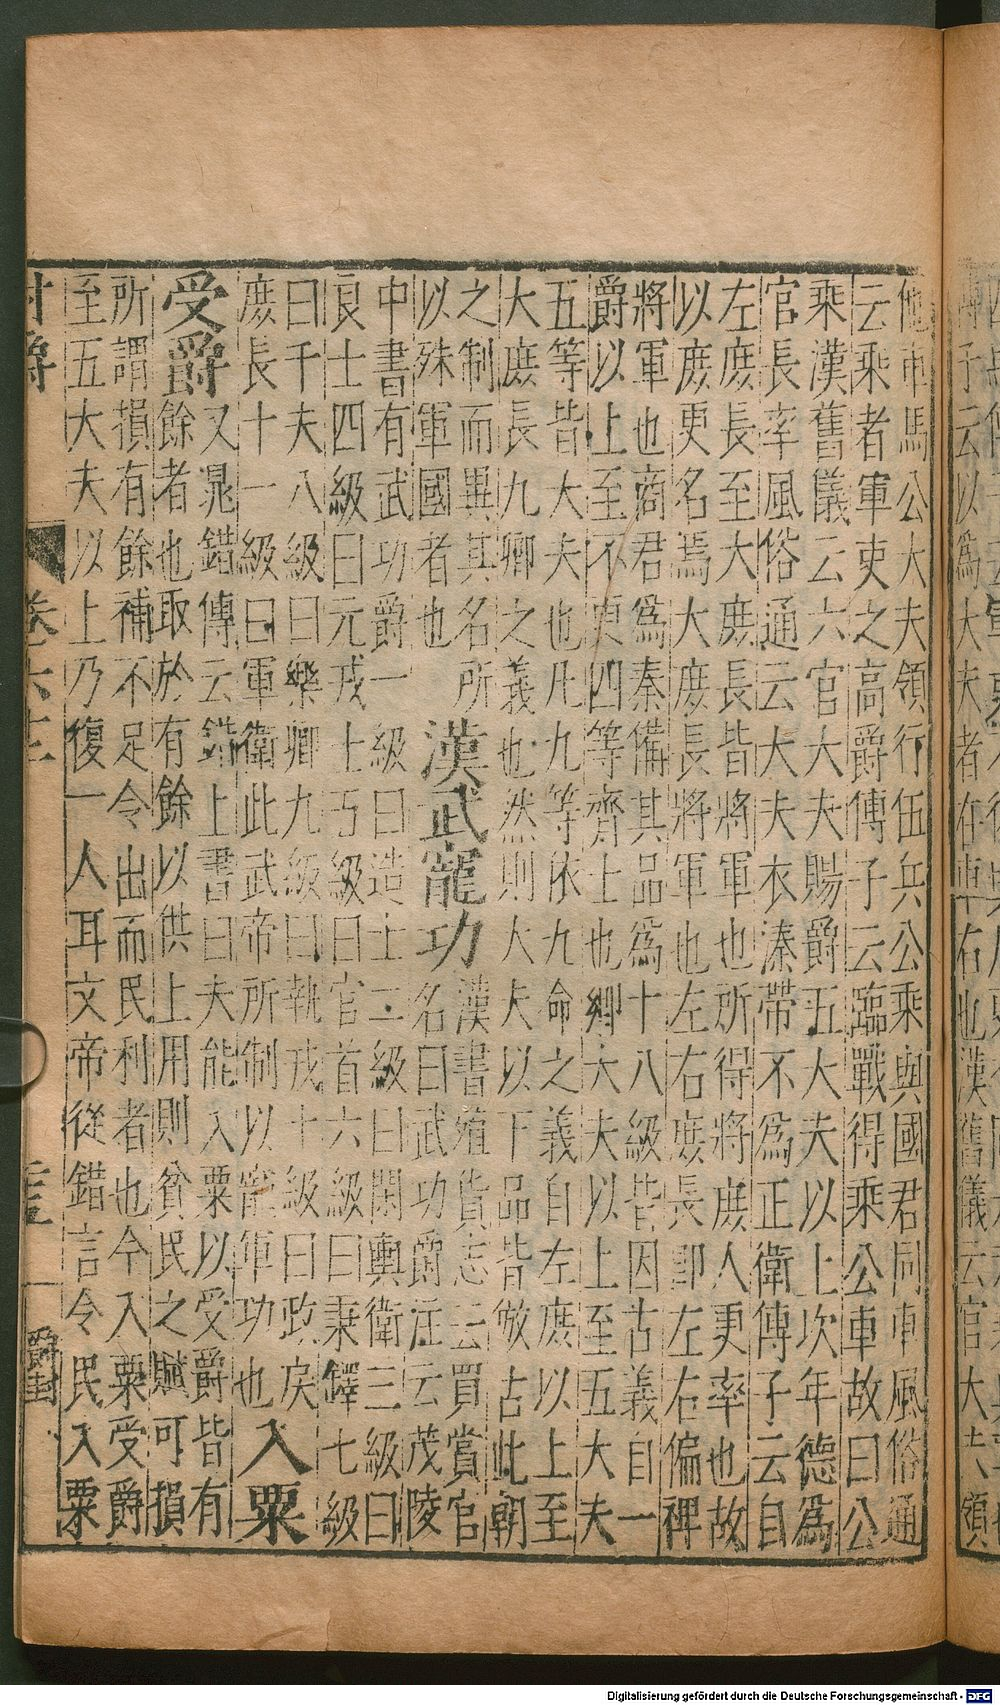 傅子云以為大夫者在車右也漢舊儀云官大夫領
他市馬公大夫領行伍兵公乘與國君同車風俗通
云乘者軍吏之高爵傅子云臨戰得乘公車故曰公
乘漢舊儀云六官大夫賜爵五大夫以上次年德為
官長率風俗通云大夫衣溱帶不為正衛傳子云自
左庶長至大庶長皆將軍也所得將庶人更率也故
以庶更名焉大庶長將軍也左右庶長即左右偏裨
將軍也商君為秦備其品為十八級皆因古義自一
爵以上至不更四等齊士也卿大夫以上至五大夫
五等皆大夫也凡九等依九命之義自左庶以上至
大庶長九卿之義也然則大夫以下品皆倣古此朝
之制而異其名所
以殊軍國者也
漢武寵功
漢書殖貨志云買賞官
名曰武功爵注云茂陵
中書有武功爵一級曰造士二級曰閑輿衛三級曰
良士四級曰元戎士丂級曰官首六級曰秉鐸七級
曰千夫八級曰樂卿九級曰執戎十級曰政戾
庶長十一級曰軍衛此武帝所制以寵軍功也
入粟
受爵
又晁錯傳云錯上書曰夫能入粟以受爵皆有
餘者也取於有餘以供上用則貧民之賦可損
所謂損有餘補不足令出而民利者也今入粟受爵
至五大夫以上乃復一人耳文帝從錯言令民入粟
封爵
爵封